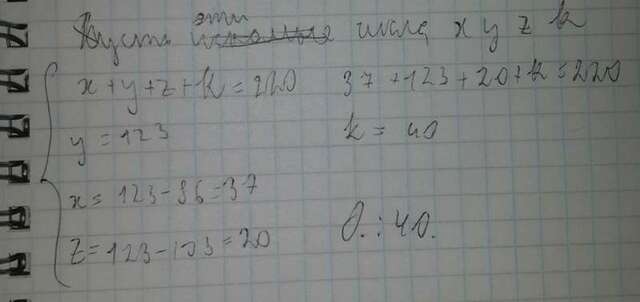 Пусть эти числа x y z k
x+y+z+k=220
y=123
x=123-86=37
z=123-103=20
37+123+20+k=220
k=40
О.: 40.